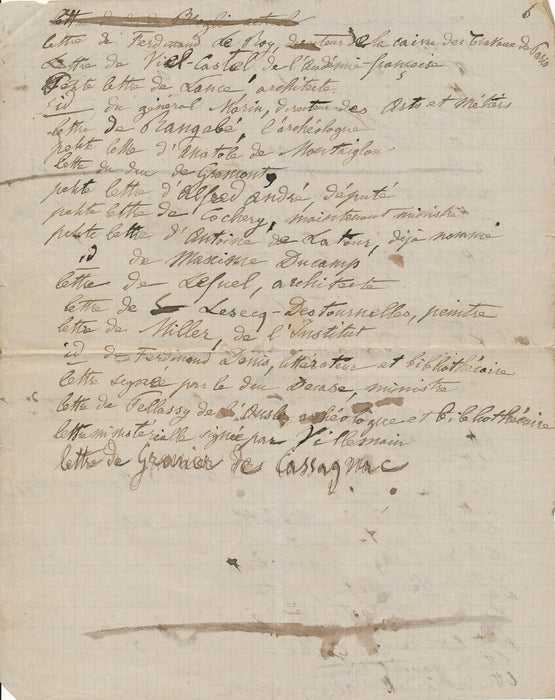 6
lettre de Broglie actuel
lettre de Ferdinand Le Roy, directeur de la caisse des travaux de Paris
Lettre de Viel-Castel de l'Académie française
Petite lettre de Lance, architecte
id du général Morin, directeur des Arts et Métiers
lettre de Rangabé, l'archéologue
petite lettre d'Anatole de Montaiglon
lettre du duc de Gramont
petite lettre d'Alfred André, député
petite lettre de Cochery, maintenant ministre
petite lettre d'Antoine de Latour, déjà nommé
id de Maxime Ducamp
lettre de Lefuel, architecte
lettre de Lesecq-Destournelles, peintre
lettre de Miller, de l'Institut
id de Ferdinand Denis, littérateur et bibliothécaire
lettre signée par le duc Decase, ministre
lettre de Pellassy de l'Ousle, archéologue et bibliothécaire
lettre ministérielle signée par Villemain
lettre de Granier des Cassagnac